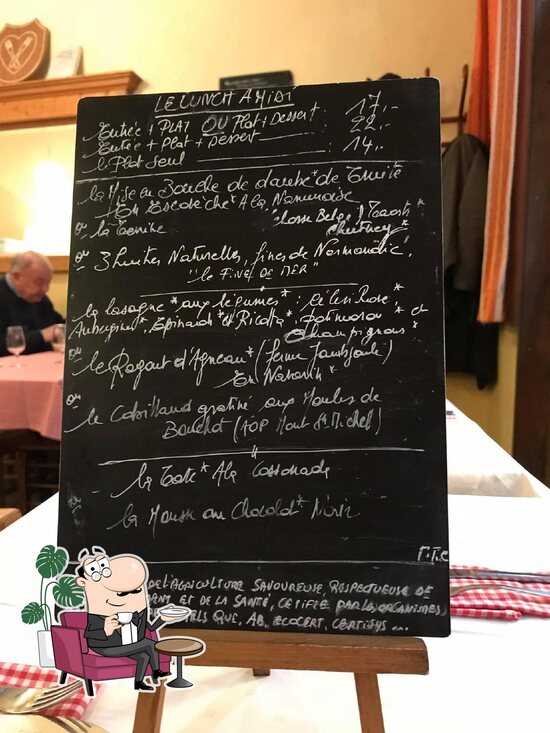 LE LUNCH A MIDI
Entrée + PLAT OU Plat + Dessert : 17,-
Entrée + Plat + Dessert : 22,-
le Plat Seul : 14,-
la Mise en Bouche de de Truite
En Escabèche * A la Normande
ou la Terrine
Chutney *
ou 3 huitres Naturelles, fines de Normandie,
"
la lasagne * aux légumes * :
Aubergines *, Epinards * et Ricotta *, Potimaron * et
Champignons *
ou le Ragout d'Agneau * (ferme
En Navarin *
ou le Cabillaud gratiné aux Moules de
Bouchot (AOP Mont St Michel)
la Tarte * A la Cassonade
la Mousse au Chocolat * Noir
T.T.C
DE L'AGRICULTURE SAVOUREUSE, RESPECTUEUSE DE
ET DE LA SANTÉ, CERTIFIÉE PAR LES ORGANISMES
TELS QUE, AB, ECOCERT, CERTISYS ...